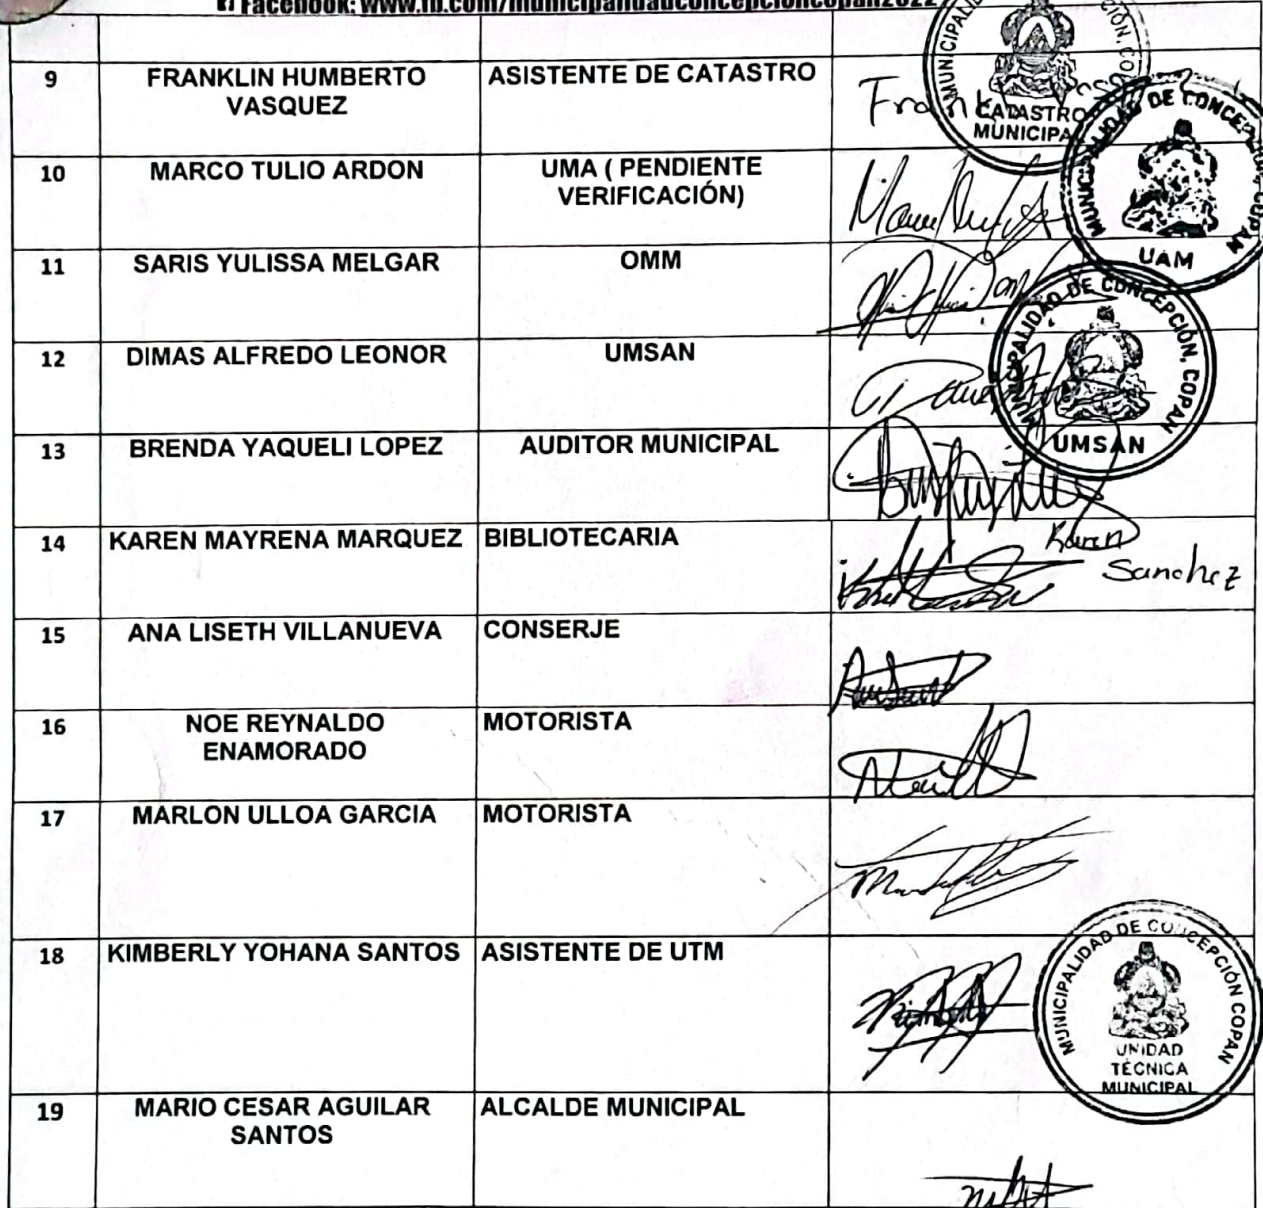 Facebook: www.fb.com/municipalidadconcepcioncopan2022
9 FRANKLIN HUMBERTO VASQUEZ ASISTENTE DE CATASTRO
CATASTRO
MUNICIPA
10 MARCO TULIO ARDON UMA ( PENDIENTE VERIFICACIÓN)
MUNICIPALIDAD DE CONCEPCIÓN, COPAN
UAM
11 SARIS YULISSA MELGAR OMM
12 DIMAS ALFREDO LEONOR UMSAN
MUNICIPALIDAD DE CONCEPCIÓN, COPAN
UMSAN
13 BRENDA YAQUELI LOPEZ AUDITOR MUNICIPAL
14 KAREN MAYRENA MARQUEZ BIBLIOTECARIA
Karen
Sanchez
15 ANA LISETH VILLANUEVA CONSERJE
16 NOE REYNALDO ENAMORADO MOTORISTA
17 MARLON ULLOA GARCIA MOTORISTA
18 KIMBERLY YOHANA SANTOS ASISTENTE DE UTM
MUNICIPALIDAD DE CONCEPCIÓN COPAN
UNIDAD
TÉCNICA
MUNICIPAL
19 MARIO CESAR AGUILAR SANTOS ALCALDE MUNICIPAL